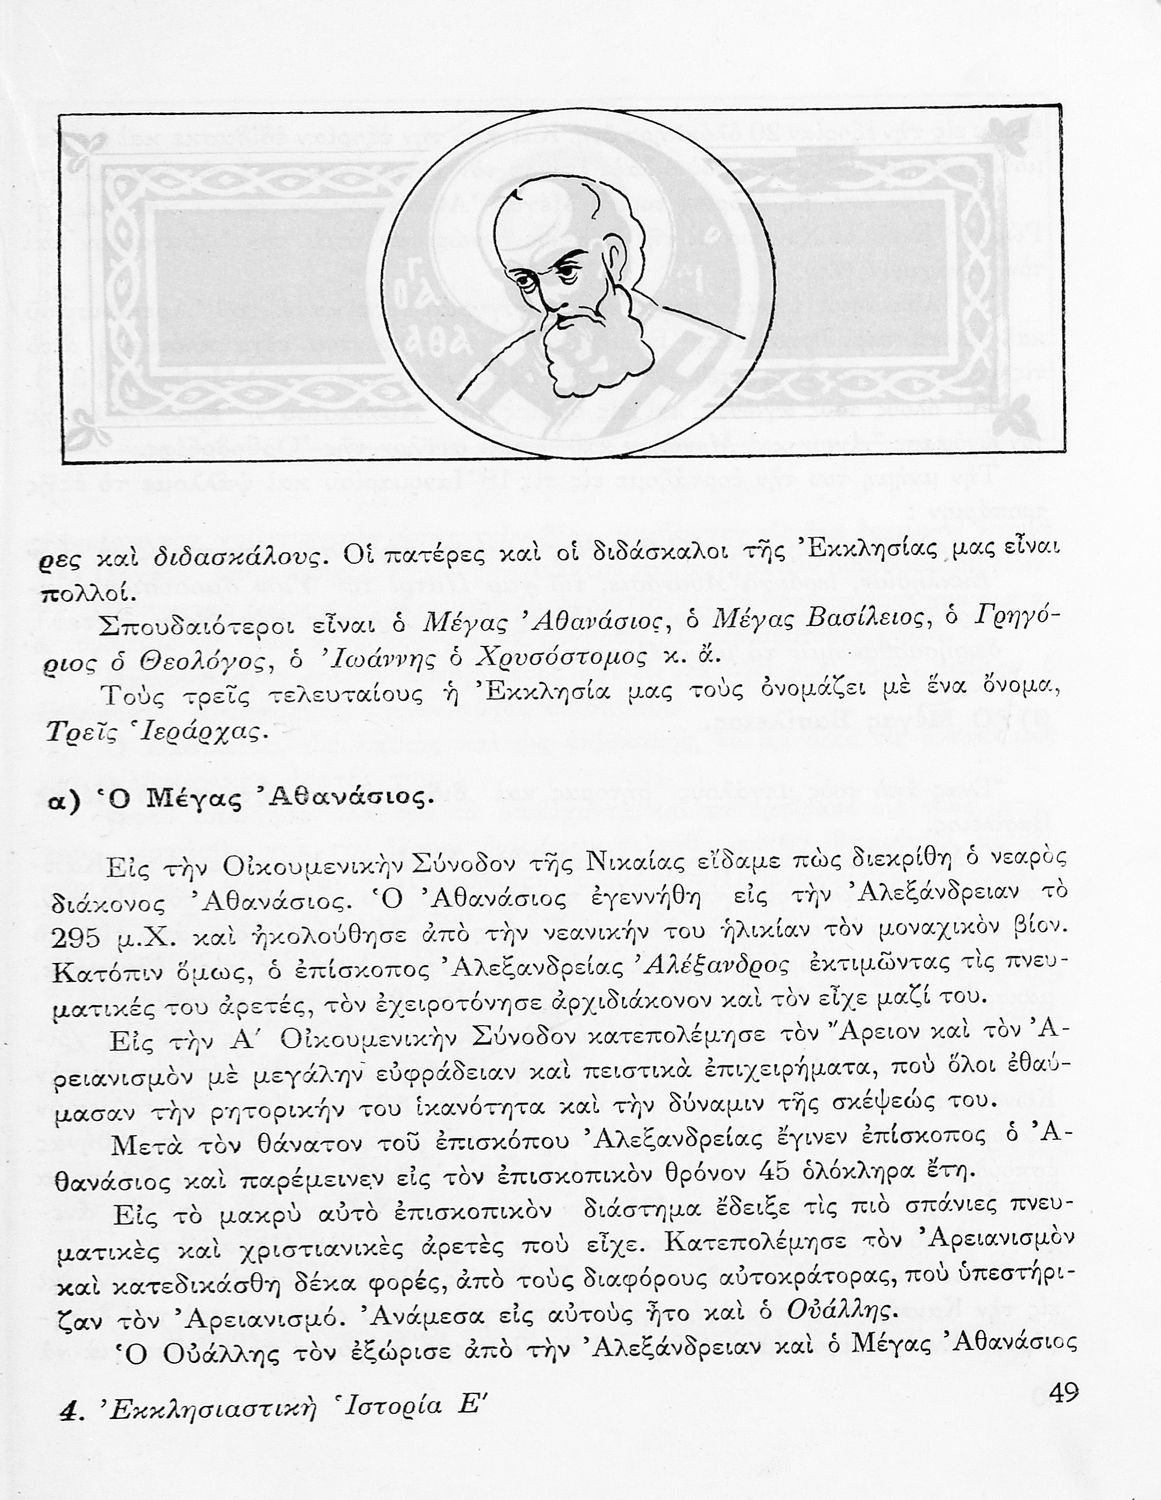 ὁ
Ἁ
ΑΘΑ
ρες καὶ διδασκάλους. Οἱ πατέρες καὶ οἱ διδάσκαλοι τῆς Ἐκκλησίας μας εἶναι
πολλοί.
Σπουδαιότεροι εἶναι ὁ Μέγας Ἀθανάσιος, ὁ Μέγας Βασίλειος, ὁ Γρηγό-
ριος ὁ Θεολόγος, ὁ Ἰωάννης ὁ Χρυσόστομος κ. ἄ.
Τοὺς τρεῖς τελευταίους ἡ Ἐκκλησία μας τοὺς ὀνομάζει μὲ ἕνα ὄνομα,
Τρεῖς Ἱεράρχας.
α) Ὁ Μέγας Ἀθανάσιος.
Εἰς τὴν Οἰκουμενικὴν Σύνοδον τῆς Νικαίας εἴδαμε πὼς διεκρίθη ὁ νεαρὸς
διάκονος Ἀθανάσιος. Ὁ Ἀθανάσιος ἐγεννήθη εἰς τὴν Ἀλεξάνδρειαν τὸ
295 μ.Χ. καὶ ἠκολούθησε ἀπὸ τὴν νεανικήν του ἡλικίαν τὸν μοναχικὸν βίον.
Κατόπιν ὅμως, ὁ ἐπίσκοπος Ἀλεξανδρείας Ἀλέξανδρος ἐκτιμῶντας τὶς πνευ-
ματικές του ἀρετές, τὸν ἐχειροτόνησε ἀρχιδιάκονον καὶ τὸν εἶχε μαζί του.
Εἰς τὴν Α′ Οἰκουμενικὴν Σύνοδον κατεπολέμησε τὸν Ἄρειον καὶ τὸν Ἀ-
ρειανισμὸν μὲ μεγάλην εὐφράδειαν καὶ πειστικὰ ἐπιχειρήματα, ποὺ ὅλοι ἐθαύ-
μασαν τὴν ρητορικήν του ἱκανότητα καὶ τὴν δύναμιν τῆς σκέψεώς του.
Μετὰ τὸν θάνατον τοῦ ἐπισκόπου Ἀλεξανδρείας ἔγινεν ἐπίσκοπος ὁ Ἀ-
θανάσιος καὶ παρέμεινεν εἰς τὸν ἐπισκοπικὸν θρόνον 45 ὁλόκληρα ἔτη.
Εἰς τὸ μακρὺ αὐτὸ ἐπισκοπικὸν διάστημα ἔδειξε τὶς πιὸ σπάνιες πνευ-
ματικὲς καὶ χριστιανικὲς ἀρετὲς ποὺ εἶχε. Κατεπολέμησε τὸν Ἀρειανισμὸν
καὶ κατεδικάσθη δέκα φορές, ἀπὸ τοὺς διαφόρους αὐτοκράτορας, ποὺ ὑπεστήρι-
ζαν τὸν Ἀρειανισμό. Ἀνάμεσα εἰς αὐτοὺς ἦτο καὶ ὁ Οὐάλλης.
Ὁ Οὐάλλης τὸν ἐξώρισε ἀπὸ τὴν Ἀλεξάνδρειαν καὶ ὁ Μέγας Ἀθανάσιος
4. Ἐκκλησιαστικὴ Ἱστορία Ε′
49